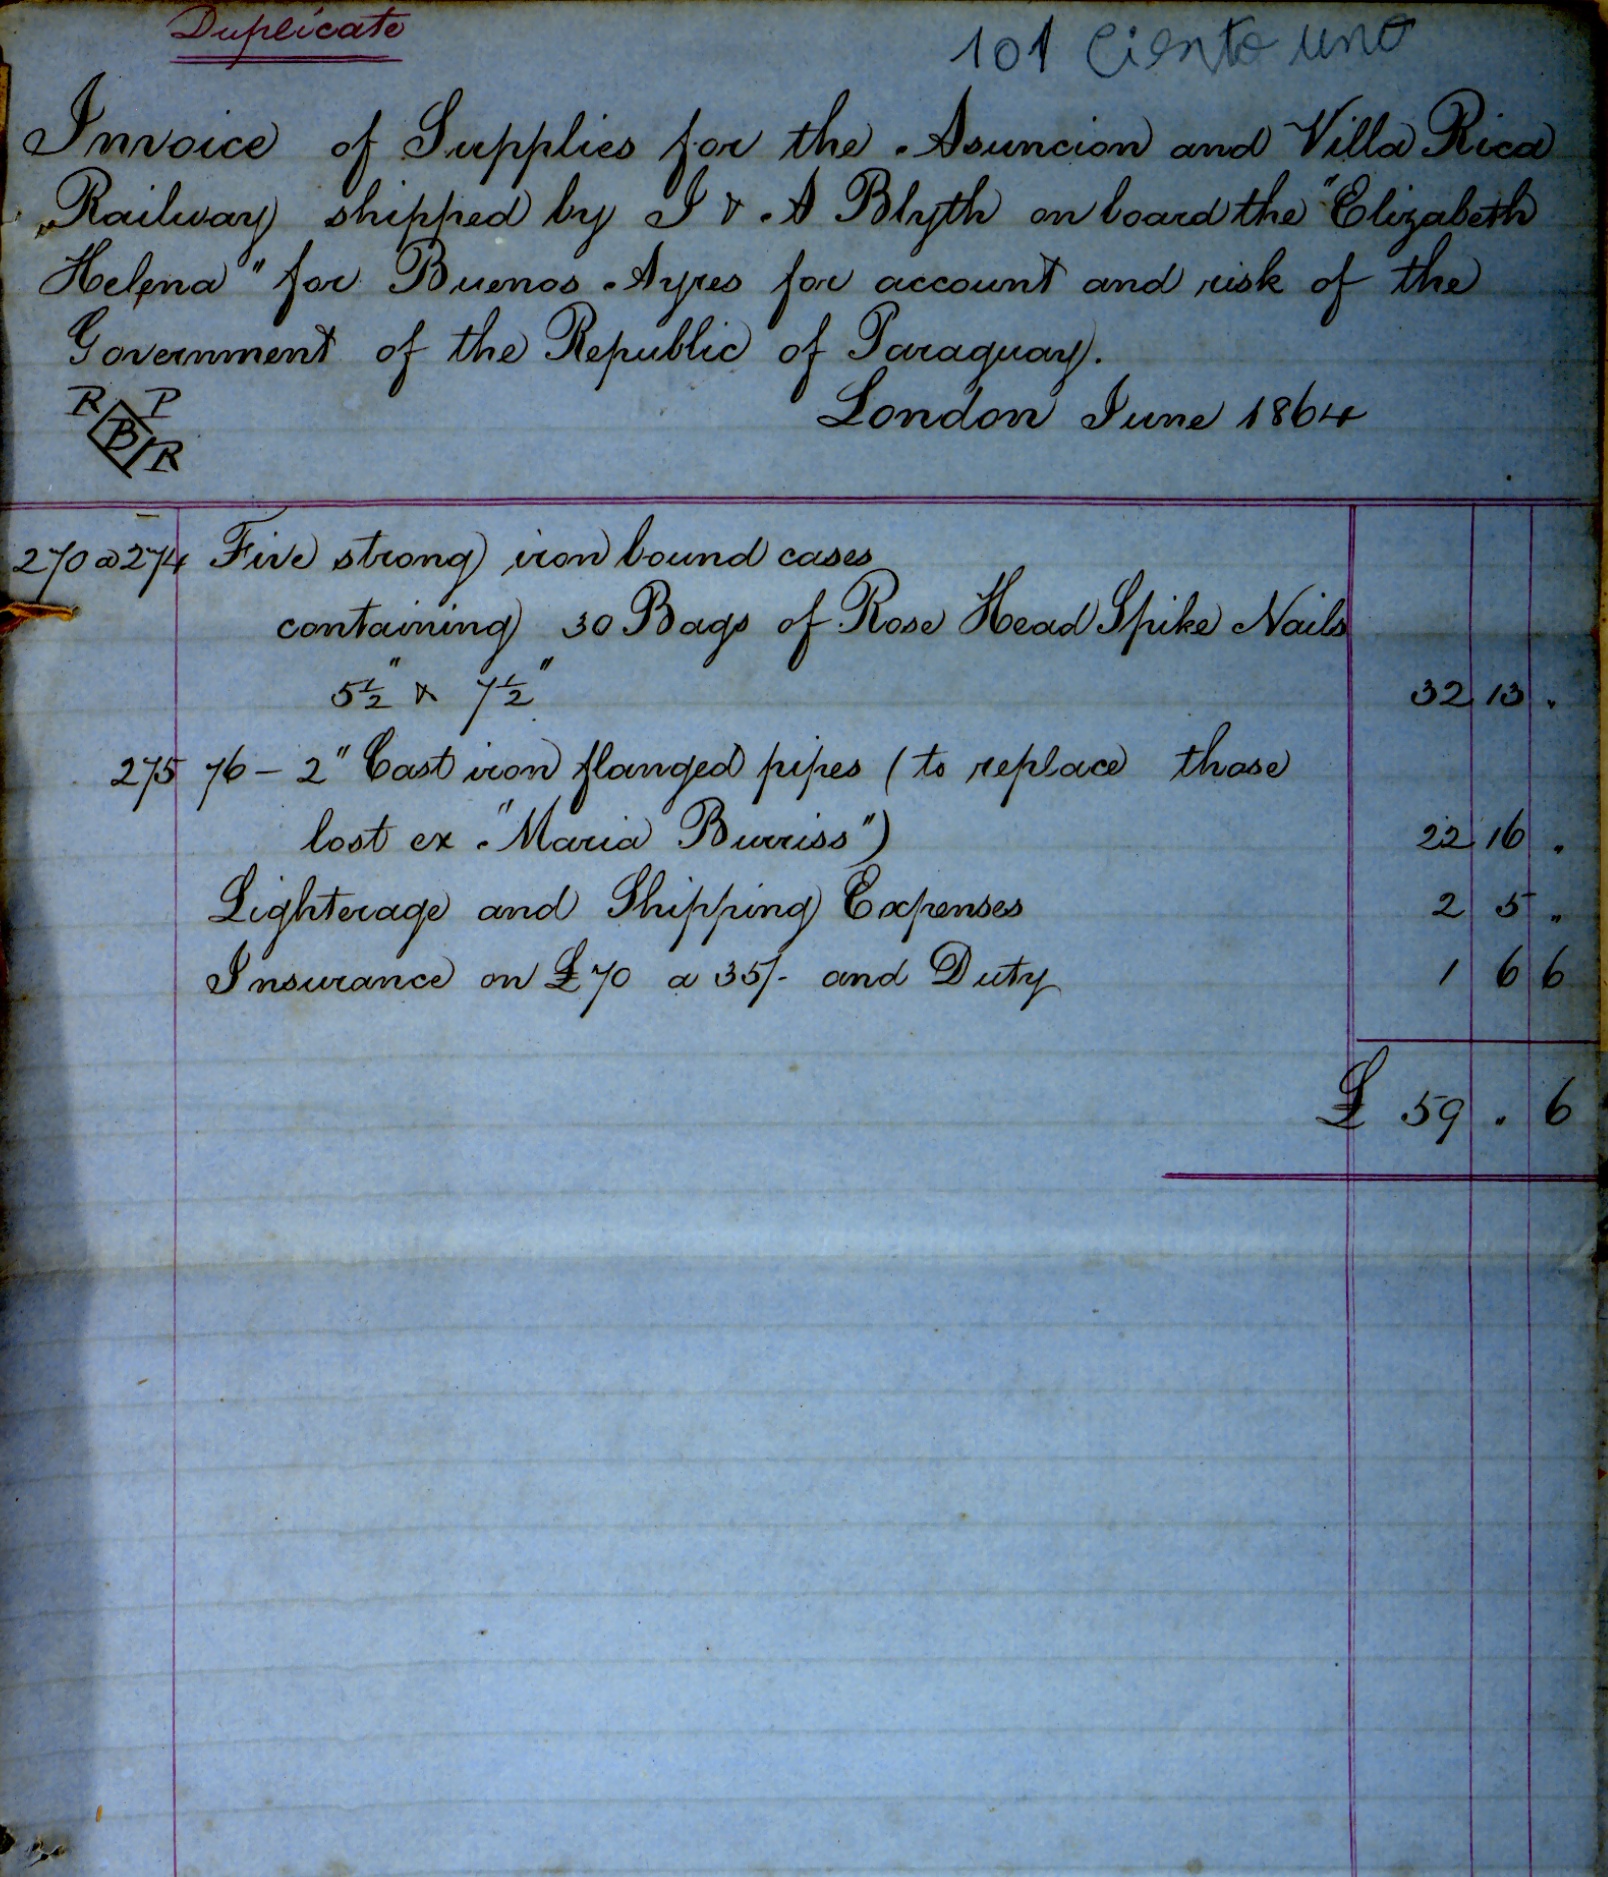 Duplicate
101 Ciento uno
Invoice of Supplies for the Asuncion and Villa Rica
Railway shipped by J & A Blyth on board the "Elizabeth
Helena" for Buenos Ayres for account and risk of the
Government of the Republic of Paraguay.
R P
B R
London June 1864
270 a 274 Five strong iron bound cases
containing 30 Bags of Rose Head Spike Nails
5½" & 7½" 32 13 "
275 76 - 2" Cast iron flanged pipes (to replace those
lost ex "Maria Burriss") 22 16 "
Lighterage and Shipping Expenses 2 5 "
Insurance on £70 a 35/- and Duty 1 6 6
£ 59 . 6